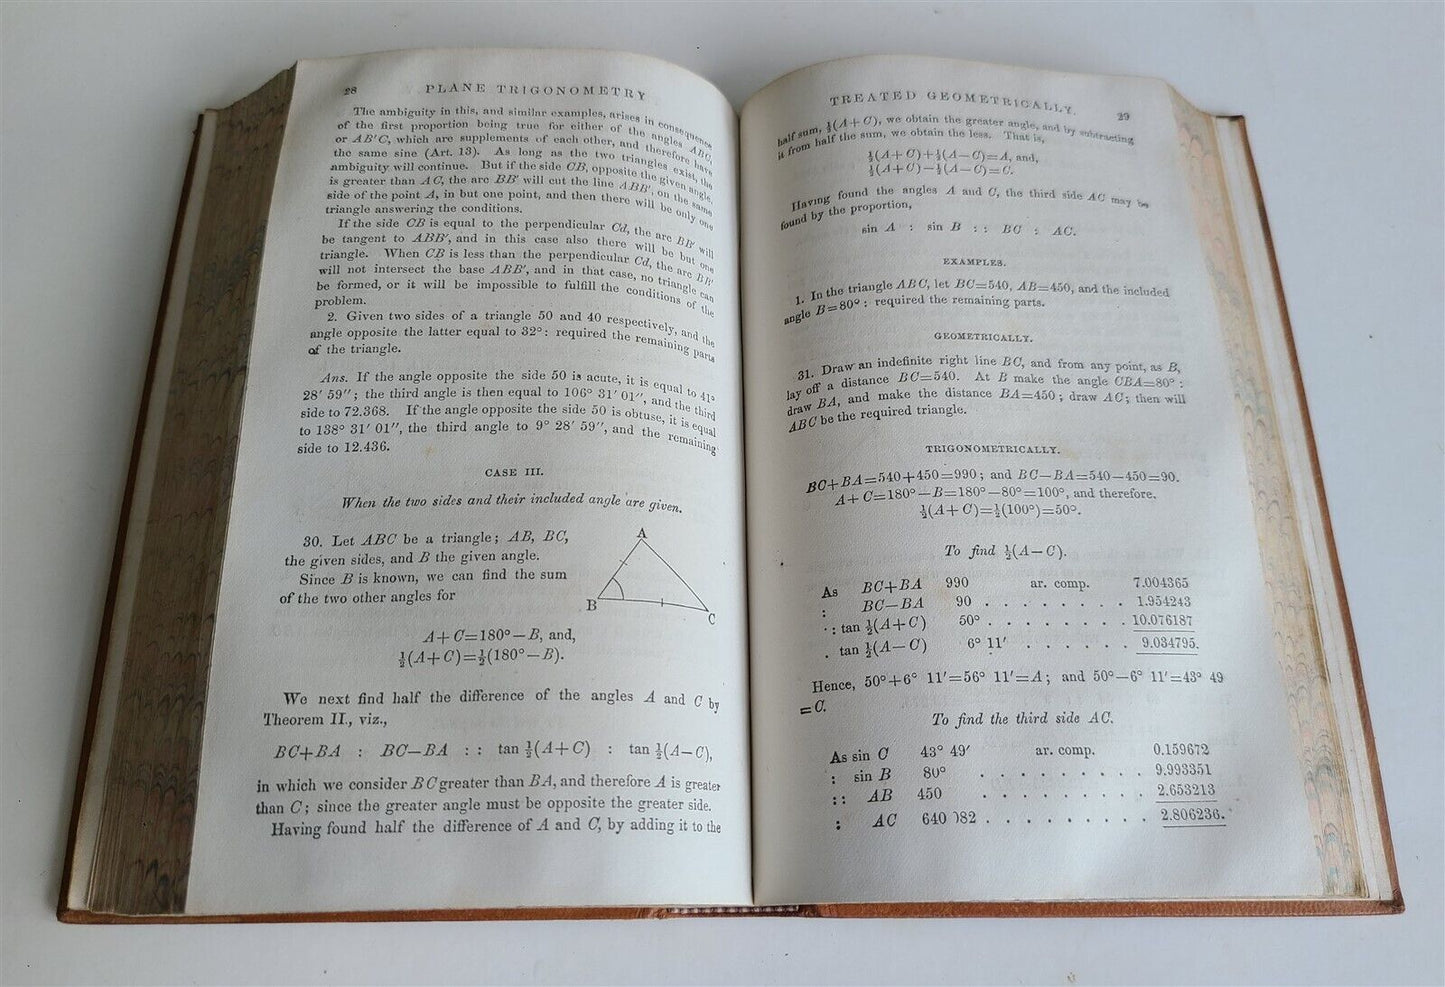 28 PLANE TRIGONOMETRY
The ambiguity in this, and similar examples, arises in consequence
of the first proportion being true for either of the angles ABC,
or AB'C, which are supplements of each other, and therefore have
the same sine (Art. 13). As long as the two triangles exist, the
ambiguity will continue. But if the side CB, opposite the given angle,
is greater than AC, the arc BB' will cut the line ABB', on the same
side of the point A, in but one point, and then there will be only one
triangle answering the conditions.
If the side CB is equal to the perpendicular Cd, the arc BB' will
be tangent to ABB', and in this case also there will be but one
triangle. When CB is less than the perpendicular Cd, the arc BB'
will not intersect the base ABB', and in that case, no triangle can
be formed, or it will be impossible to fulfill the conditions of the
problem.
2. Given two sides of a triangle 50 and 40 respectively, and the
angle opposite the latter equal to 32°: required the remaining parts
of the triangle.
Ans. If the angle opposite the side 50 is acute, it is equal to 41°
28′ 59″; the third angle is then equal to 106° 31′ 01″, and the third
side to 72.368. If the angle opposite the side 50 is obtuse, it is equal
to 138° 31′ 01″, the third angle to 9° 28′ 59″, and the remaining
side to 12.436.
CASE III.
When the two sides and their included angle are given.
30. Let ABC be a triangle; AB, BC,
the given sides, and B the given angle.
Since B is known, we can find the sum
of the two other angles for
A
B
C
A+C=180°−B, and,
½(A+C)=½(180°−B).
We next find half the difference of the angles A and C by
Theorem II., viz.,
BC+BA : BC−BA :: tan ½(A+C) : tan ½(A−C),
in which we consider BC greater than BA, and therefore A is greater
than C; since the greater angle must be opposite the greater side.
Having found half the difference of A and C, by adding it to the
TREATED GEOMETRICALLY. 29
half sum, ½(A+C), we obtain the greater angle, and by subtracting
it from half the sum, we obtain the less. That is,
½(A+C)+½(A−C)=A, and,
½(A+C)−½(A−C)=C.
Having found the angles A and C, the third side AC may be
found by the proportion,
sin A : sin B :: BC : AC.
EXAMPLES.
1. In the triangle ABC, let BC=540, AB=450, and the included
angle B=80°; required the remaining parts.
GEOMETRICALLY.
31. Draw an indefinite right line BC, and from any point, as B,
lay off a distance BC=540. At B make the angle CBA=80°:
draw BA, and make the distance BA=450; draw AC; then will
ABC be the required triangle.
TRIGONOMETRICALLY.
BC+BA=540+450=990; and BC−BA=540−450=90.
A+C=180°−B=180°−80°=100°, and therefore,
½(A+C)=½(100°)=50°.
To find ½(A−C).
As BC+BA 990 ar. comp. 7.004365
: BC−BA 90 . . . . . . . . 1.954243
:: tan ½(A+C) 50° . . . . . . . . 10.076187
. tan ½(A−C) 6° 11′ . . . . . . 9.034795.
Hence, 50°+6° 11′=56° 11′=A; and 50°−6° 11′=43° 49
=C.
To find the third side AC.
As sin C 43° 49′ ar. comp. 0.159672
: sin B 80° . . . . . . . . . 9.993351
:: AB 450 . . . . . . . . . 2.653213
: AC 640 082 . . . . . . . . . 2.806236.